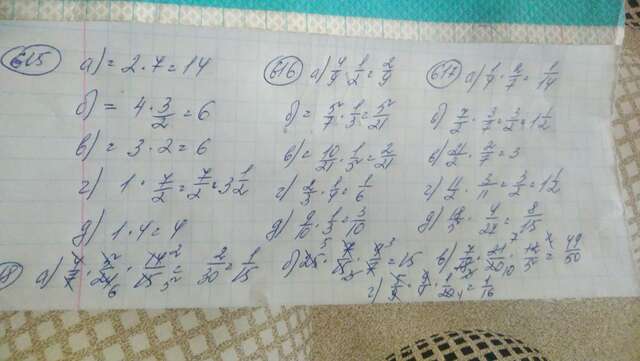 615 а) = 2·7 = 14
б) = 4·3/2 = 6
в) = 3·2 = 6
г) 1·7/2 = 7/2 = 3 1/2
д) 1·4 = 4
616 а) 4/9·1/2 = 2/9
б) = 5/7·1/3 = 5/21
в) = 10/21·1/5 = 2/21
г) 2/3·1/4 = 1/6
д) 9/10·1/3 = 3/10
617 а) 1/4·2/7 = 1/14
б) 7/2·3/7 = 3/2 = 1 1/2
в) 21/2·2/7 = 3
г) 11/2·3/11 = 3/2 = 1 1/2
= 8/15
8 а)
= 2/30 = 1/15
б)
= 15
в)
= 49/50
г)
= 1/16